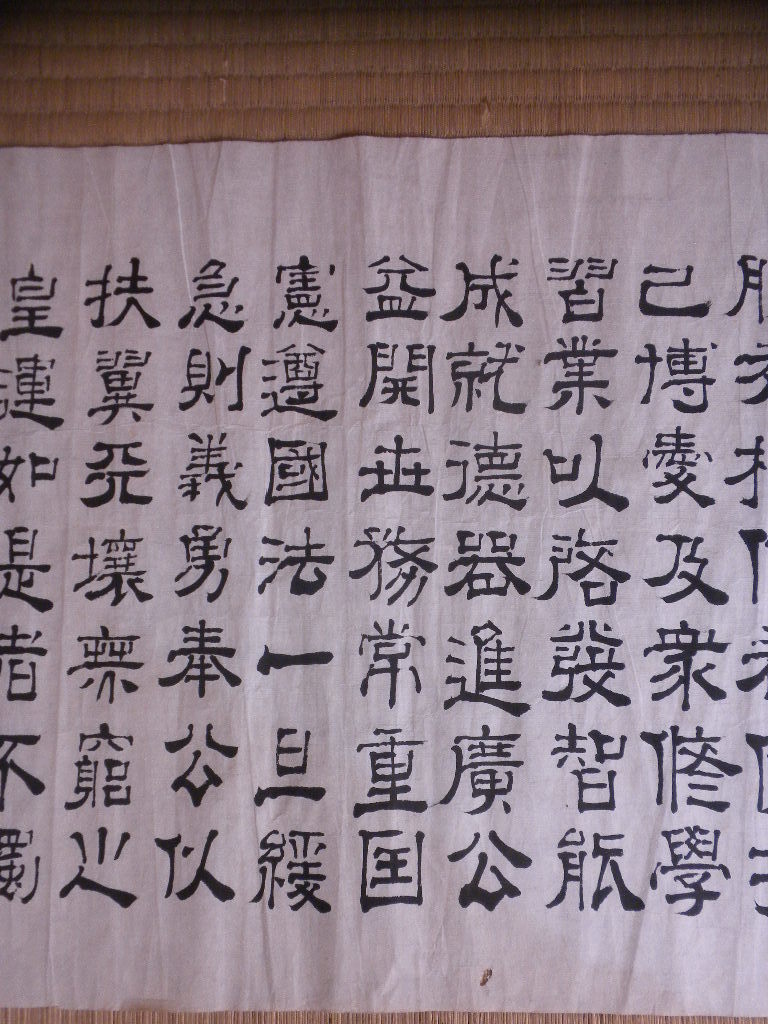 己博愛及衆修學
習業以啓發智能
成就德器進廣公
益開世務常重囯
憲遵國法一旦緩
急則義勇奉公以
扶翼天壤無窮之
皇運如是者不獨